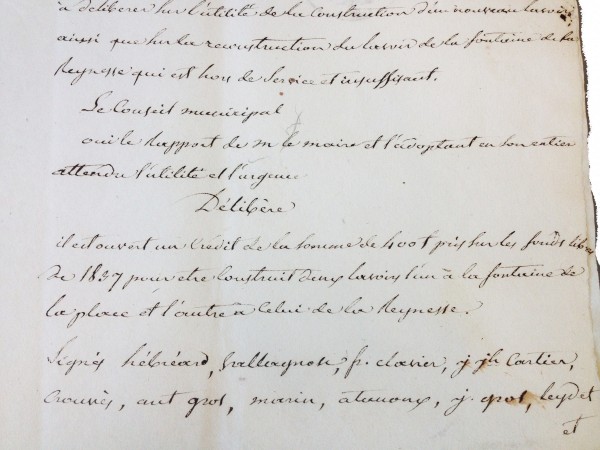 à délibérer sur l'utilité de la Construction d'un nouveau lavoir
ainsi que sur la reconstruction du lavoir de la fontaine de la
Reynesse qui est hors de Service et insuffisant.
Le Conseil municipal
oui le Rapport de m le maire et l'adoptant en son entier
attendu l'utilité et l'urgence
Délibère
il est ouvert un Crédit de la somme de 400 f pris sur les fonds libres
de 1837 pour etre Construit deux lavoirs l'un à la fontaine de
la place et l'autre a Celui de la Reynesse.
Signés hébréard, fr. clavier, j. jh Cartier,
ant gros, marin, j. gros, leydet
et